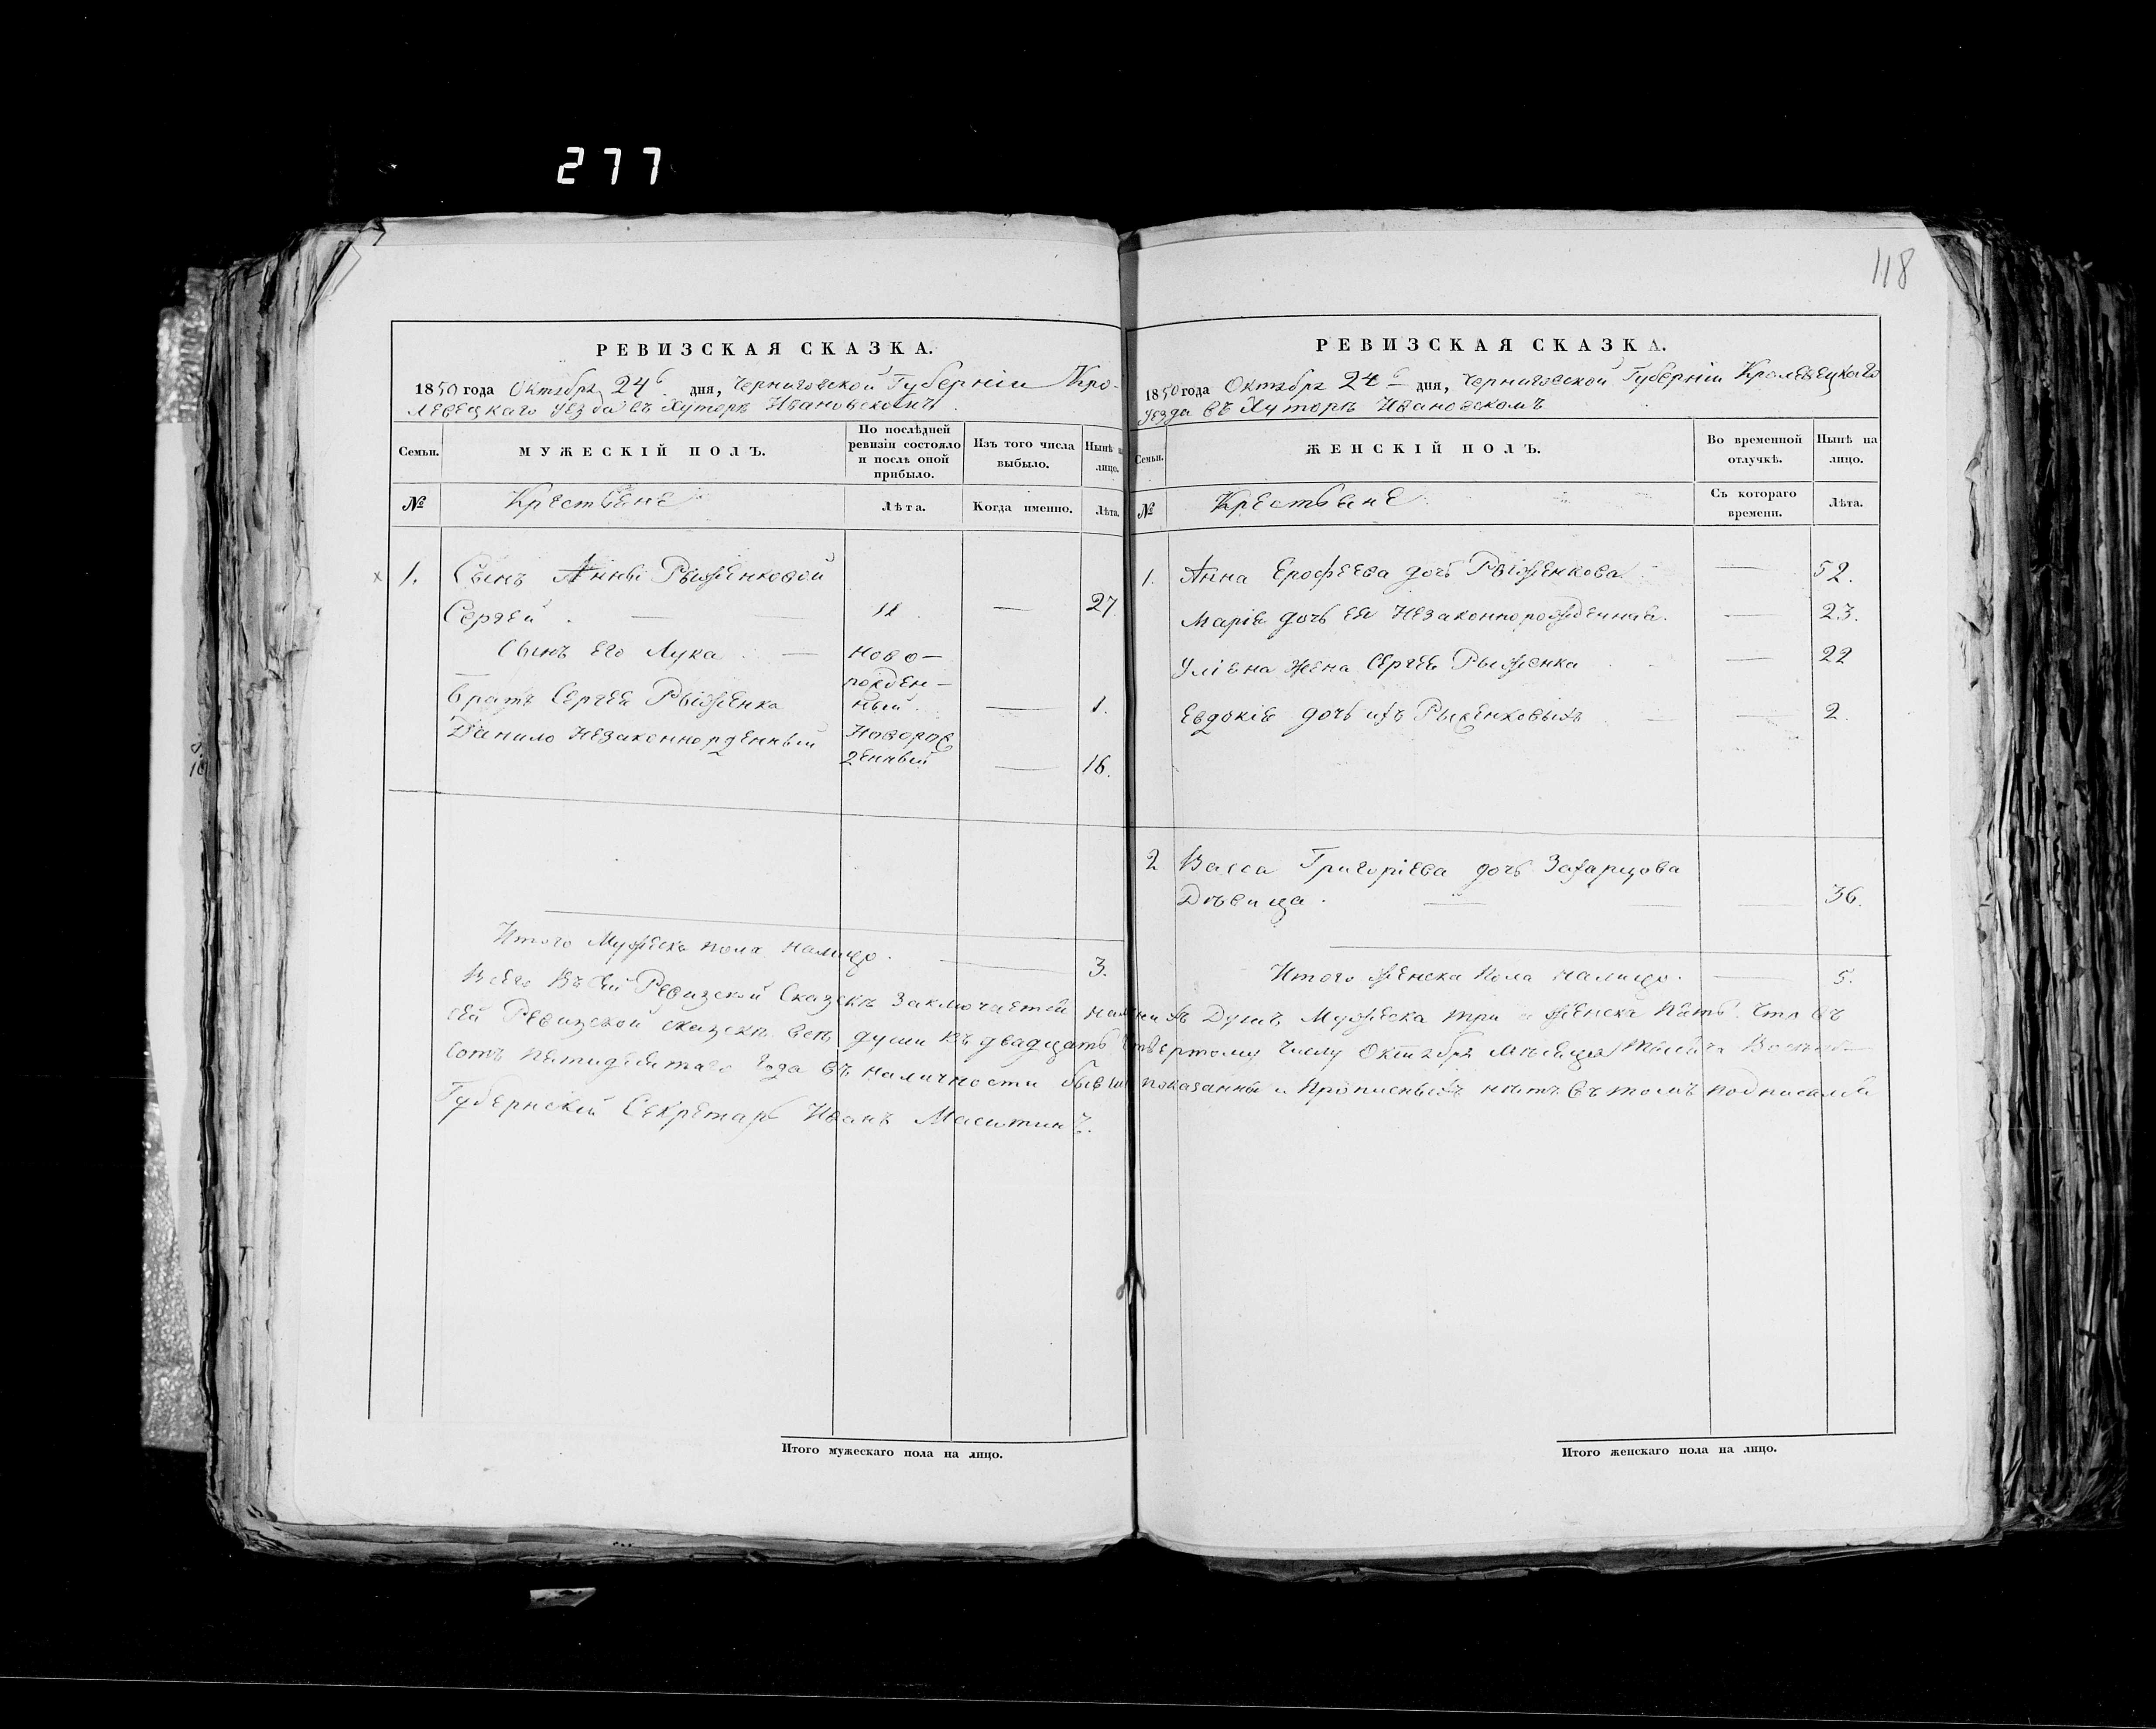 277
118
РЕВИЗСКАЯ СКАЗКА.
1850 года Октября 24го дня, Черниговской Губерніи Кро-
левецкаго уезда въ Хуторѣ Ивановскомъ
Семьи.
МУЖЕСКІЙ ПОЛЪ.
По послѣдней
ревизіи состояло
и послѣ оной
прибыло.
Изъ того числа
выбыло.
Нынѣ на
лицо.
№
Крестьяне
Лѣта.
Когда именно.
Лѣта.
1. Сынъ Анны Рыженковой
Сергей . — — 11 — 27.
Сынъ его Лука . — ново-
рожден-
ный . — 1.
Братъ Сергея Рыженка
Данило незаконнорденный Новорож
денный — 16.
Итого Мужеска пола налицо. — 3.
РЕВИЗСКАЯ СКАЗКА.
1850 года Октября 24го дня, Черниговской Губерніи Кролевецкаго
уезда въ Хуторѣ Ивановскомъ
Семьи.
ЖЕНСКІЙ ПОЛЪ.
Во временной
отлучкѣ.
Нынѣ на
лицо.
№
Крестьяне
Съ котораго
времени.
Лѣта.
1. Анна Ерофеева дочь Рыженкова — 52.
Марія дочь ея незаконнорожденная. — 23.
Уліяна жена Сергея Рыженка — 22
Евдокія дочь ихъ Рыженковыхъ — 2.
2 Васса Григоріева дочь Захарцова
Дѣвица . — — — 36.
Итого женска пола налицо. — 5.
Всего въ сей Ревизской Сказкѣ заключается наличныхъ Душъ Мужеска три и женска пять. Что въ
сей Ревизской сказкѣ всѣ души къ двадцать четвертому числу Октября мѣсяца тысяча Восемь-
сотъ пятидесятаго года въ наличности бывши показанны и прописныхъ нѣтъ въ томъ подписался
Губернскій Секретарь Иванъ
Итого мужескаго пола на лицо.
Итого женскаго пола на лицо.